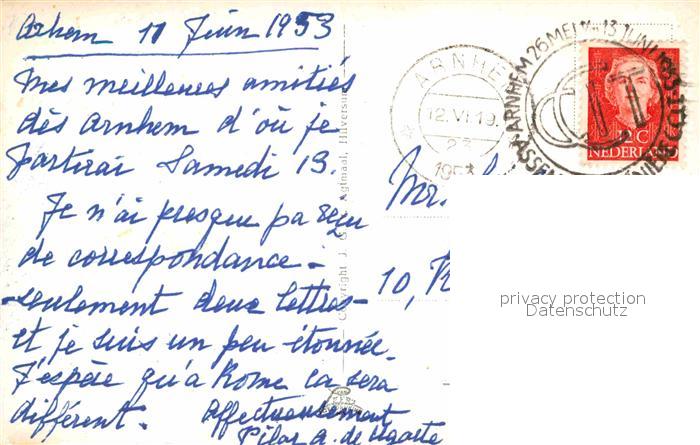 Arhem 11 Juin 1953
Mes meilleures amitiés
dès Arnhem d'où je
partirai Samedi 13.
Je n'ai presque pa reçu
de correspondance -
- seulement deux lettres -
et je suis un peu étonnée.
J'espère qu'à Rome ca sera
différent. Affectueusement
Pilar A. de Ugarte
Copyright J. Agtmaal, Hilversum
ARNHEM
12.VI.19
23
1953
ARNHEM 26 MEI 13 JUNI 1953
CIT
12 C
NEDERLAND
Mr.
10,
privacy protection
Datenschutz